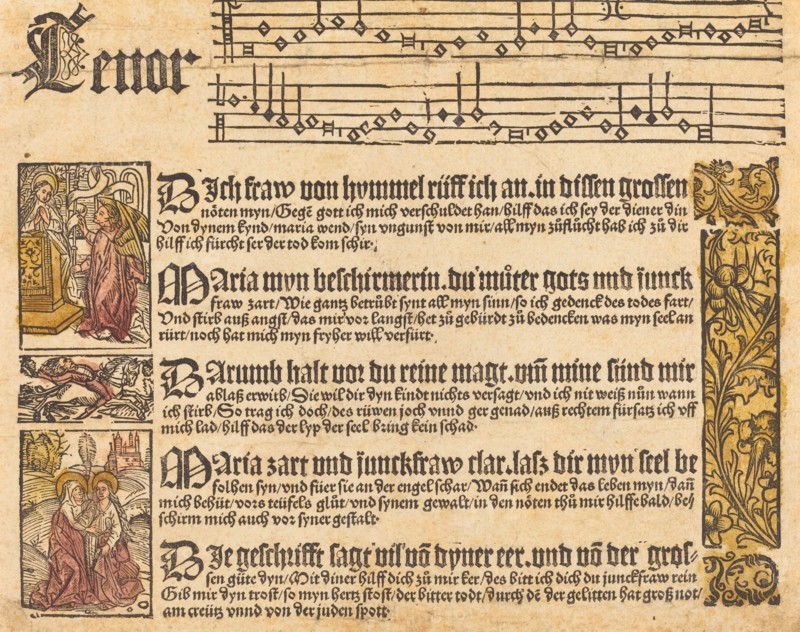 Tenor
DIch fraw von hymmel rüff ich an. in dissen grossen
nöten myn/Gegē gott ich mich verschuldet han/hilff das ich sey der diener din
Von dynem kynd/maria wend/syn vngunst von mir/all myn zůflůcht hab ich zů dir
hilff ich fürcht ser der tod kom schir.
MAria myn beschirmerin. du můter gots vnd junck
fraw zart/Wie gantz betrübt synt all myn sinn/so ich gedenck des todes fart/
Vnd stirb auß angst/das mir vor langst/het zů gebürdt zů bedencken was myn seel an
rürt/noch hat mich myn fryher will verfürt.
DArumb halt vor du reine magt. vm̄ mine sünd mir
ablaß erwirb/Sie wil dir dyn kindt nichts versagt/vnd ich nit weiß nūn wann
ich stirb/So trag ich doch/des rüwen joch vnnd ger genad/auß rechtem fürsatz ich vff
mich lad/hilff das der lyp der seel bring kein schad.
MAria zart vnd junckfraw clar. lasz dir myn seel be
folhen syn/vnd füer sie an der engel schar/Wañ sich endet das leben myn/dañ
mich behüt/vors teüfels glüt/vnd synem gewalt/in den nöten thů mir hilffe bald/be/
schirm mich auch vor syner gestalt.
DIe geschrifft sagt vil vō dyner eer. vnd vō der gros-
sen güte dyn/Mit diner hilff dich zů mir ker/des bitt ich dich du junckfraw rein
Gib mir dyn trost/so myn hertz stost/der bitter todt/durch dē der gelitten hat groß not/
am creütz vnnd von der juden spott.